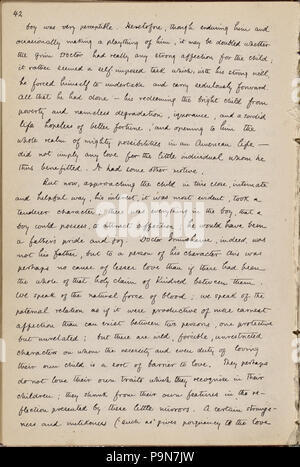 42
boy was very perceptible. Heretofore, though enduring him and
occasionally making a plaything of him, it may be doubted whether
the grim Doctor had really any strong affection for the child;
it rather seemed a self imposed task which, with his strong will,
he forced himself to undertake and carry sedulously forward.
All that he had done — his redeeming the bright child from
poverty and nameless degradation, ignorance, and a sordid
life hopeless of better fortune, and opening to him the
whole realm of mighty possibilities in an American life —
did not imply any love for the little individual whom he
thus benefitted. It had some other motive.
But now, approaching the child in this close, intimate
and helpful way, his interest, it was most evident, took a
tenderer character. There was everything in the boy, that a
boy could possess, to attract affection; he would have been
a father's pride and joy. Doctor Grimshawe, indeed, was
not his father, but to a person of his character this was
perhaps no cause of lesser love than if there had been
the whole of that holy claim of kindred between them.
We speak of the natural force of blood; we speak of the
paternal relation as if it were productive of more earnest
affection than can exist between two persons, one protective
but unrelated; but there are wild, forcible, unrestricted
characters on whom the necessity and even duty of loving
their own child is a sort of barrier to love. They perhaps
do not love their own traits which they recognize in their
children; they shrink from their own features in the re-
flection presented by these little mirrors. A certain strange-
ness and unlikeness (such as gives poignancy to the love
alamy
Image ID: P9N7JW
www.alamy.com